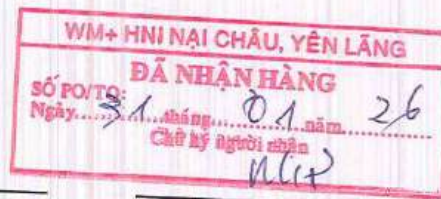 WM+ HNI NẠI CHÂU, YÊN LÃNG
ĐÃ NHẬN HÀNG
SỐ PO/TO:
Ngày.....31.....tháng.....01.....năm.....26
Chữ ký người nhận